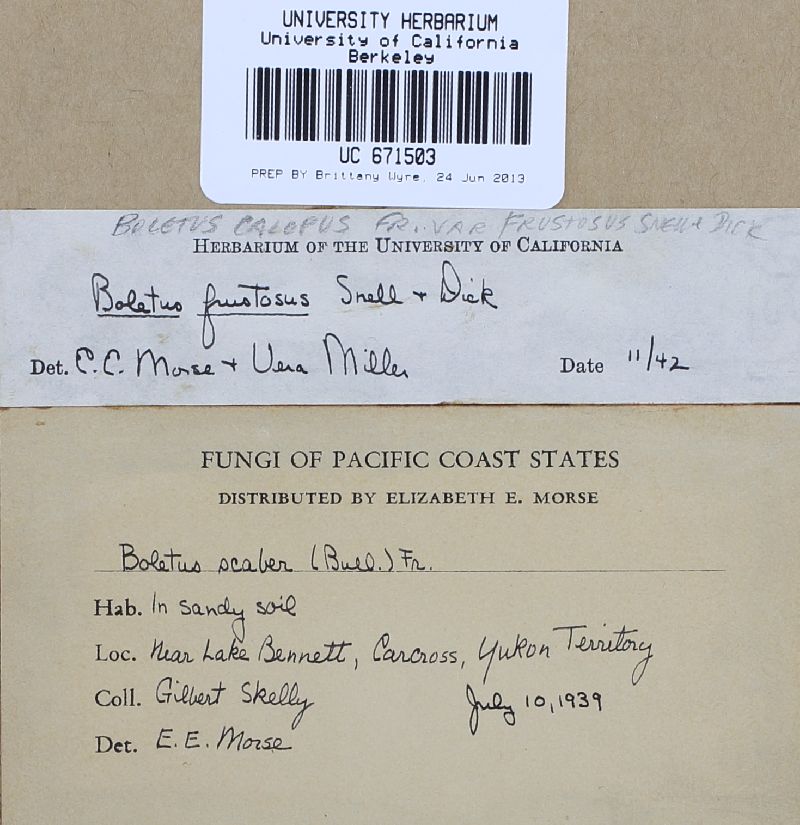 UNIVERSITY HERBARIUM
University of California
Berkeley
UC 671503
PREP BY Brittany Wyre, 24 Jun 2013
BOLETUS CALOPUS FR. VAR FRUSTOSUS SNELL & DICK
HERBARIUM OF THE UNIVERSITY OF CALIFORNIA
Boletus frustosus Snell + Dick
Det. C.C. Morse + Vera Miller Date 11/42
FUNGI OF PACIFIC COAST STATES
DISTRIBUTED BY ELIZABETH E. MORSE
Boletus scaber (Bull.) Fr.
Hab. In sandy soil
Loc. Near Lake Bennett, Carcross, Yukon Territory
Coll. Gilbert Skelly July 10, 1939
Det. E. E. Morse